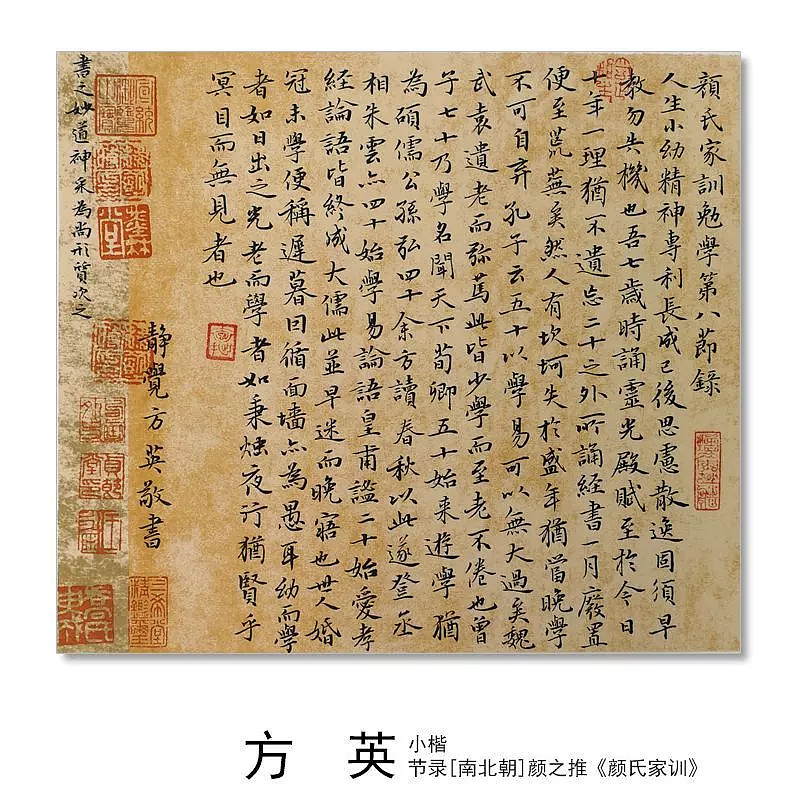 顏氏家訓勉學第八節錄
人生小幼精神專利長成已後思慮散逸固須早
教勿失機也吾七歲時誦靈光殿賦至於今日
十年一理猶不遺忘二十之外所誦經書一月廢置
便至荒蕪矣然人有坎坷失於盛年猶當晚學
不可自弃孔子云五十以學易可以無大過矣魏
武袁遺老而弥篤此皆少學而至老不倦也曾
子七十乃學名聞天下荀卿五十始来遊學猶
為碩儒公孫弘四十余方讀春秋以此遂登丞
相朱雲亦四十始學易論語皇甫謐二十始愛孝
經論語皆終成大儒此並早迷而晚寤也世人婚
冠未學便稱遲暮曰循面墻亦為愚耳幼而學
者如日出之光老而學者如秉烛夜行猶賢乎
冥目而無見者也
靜覺方英敬書
書之妙道神采為尚形質次之
方 英
小楷
节录[南北朝]颜之推《颜氏家训》